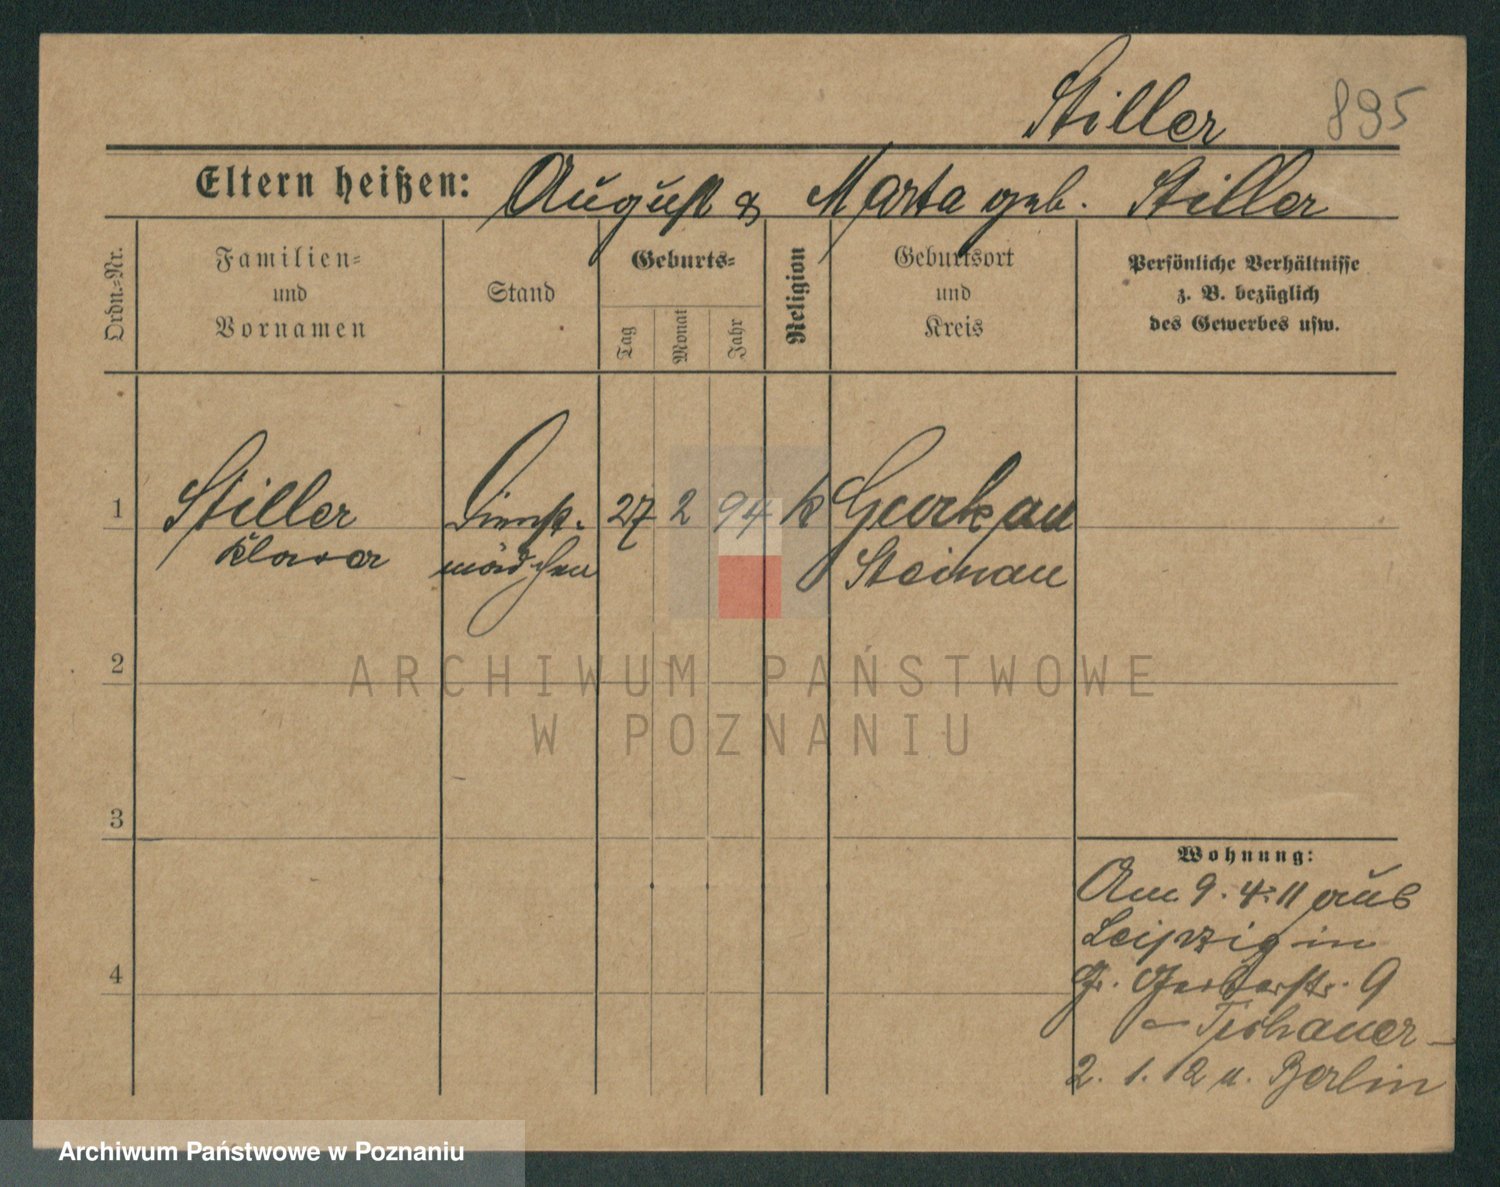 Stiller 895
Eltern heißen: August & Marta geb. Stiller
Ordn.-Nr.
Familien-
und
Vornamen
Stand
Geburts-
Tag
Monat
Jahr
Religion
Geburtsort
und
Kreis
Persönliche Verhältnisse
z. B. bezüglich
des Gewerbes usw.
1 Stiller Dienst- 27 2 94 k Gurkau
Klara mädchen Steinau
2
3
4
Wohnung:
Am 9. 4. 11 aus
Leipzig in
Gr. Gerberstr. 9
2. 1. 12 n. Berlin
ARCHIWUM PAŃSTWOWE
W POZNANIU
Archiwum Państwowe w Poznaniu